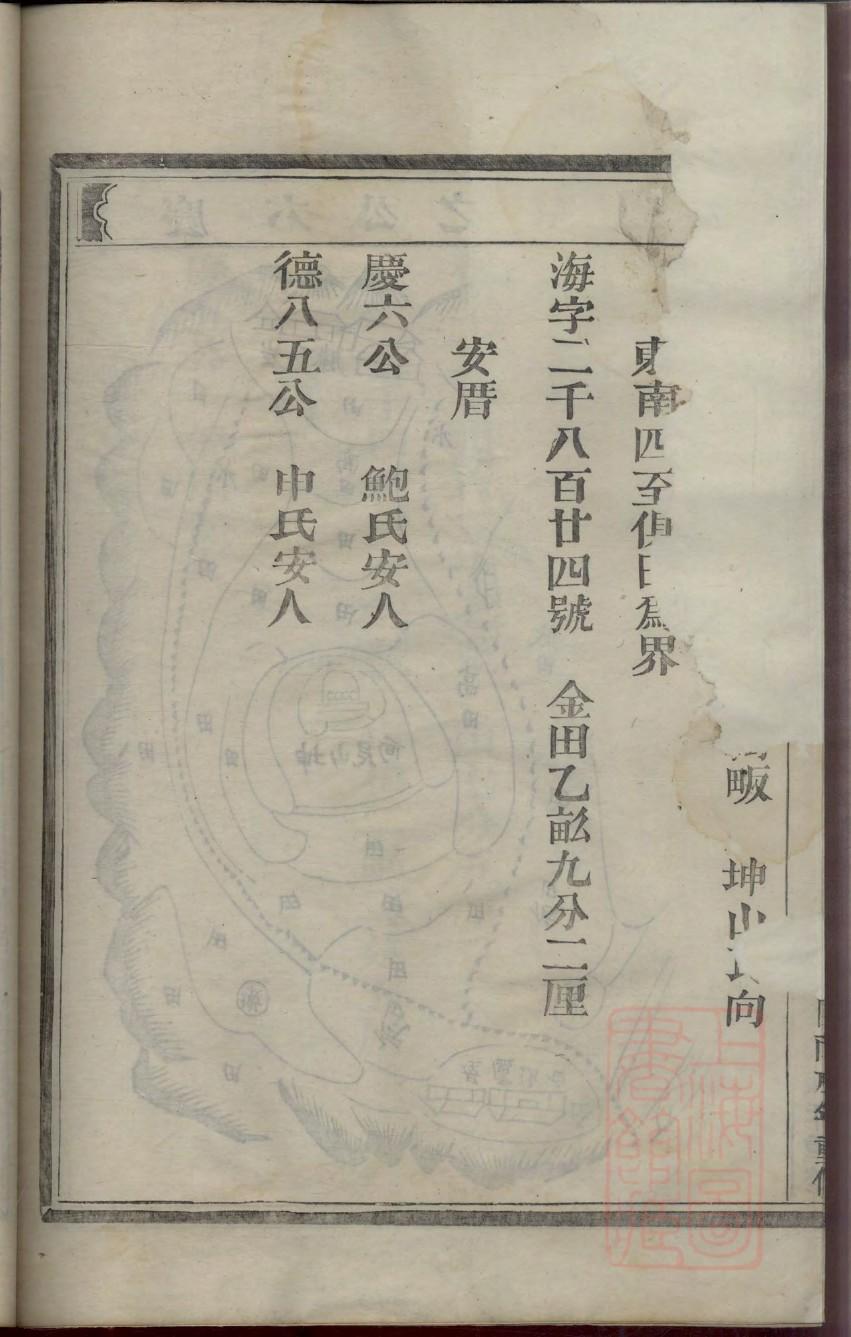 畈　坤山艮向
東南四至俱田為界
海字二千八百廿四號　金田乙畝九分二厘
安厝
慶六公　鮑氏安人
德八五公　申氏安人
上海圖書館藏